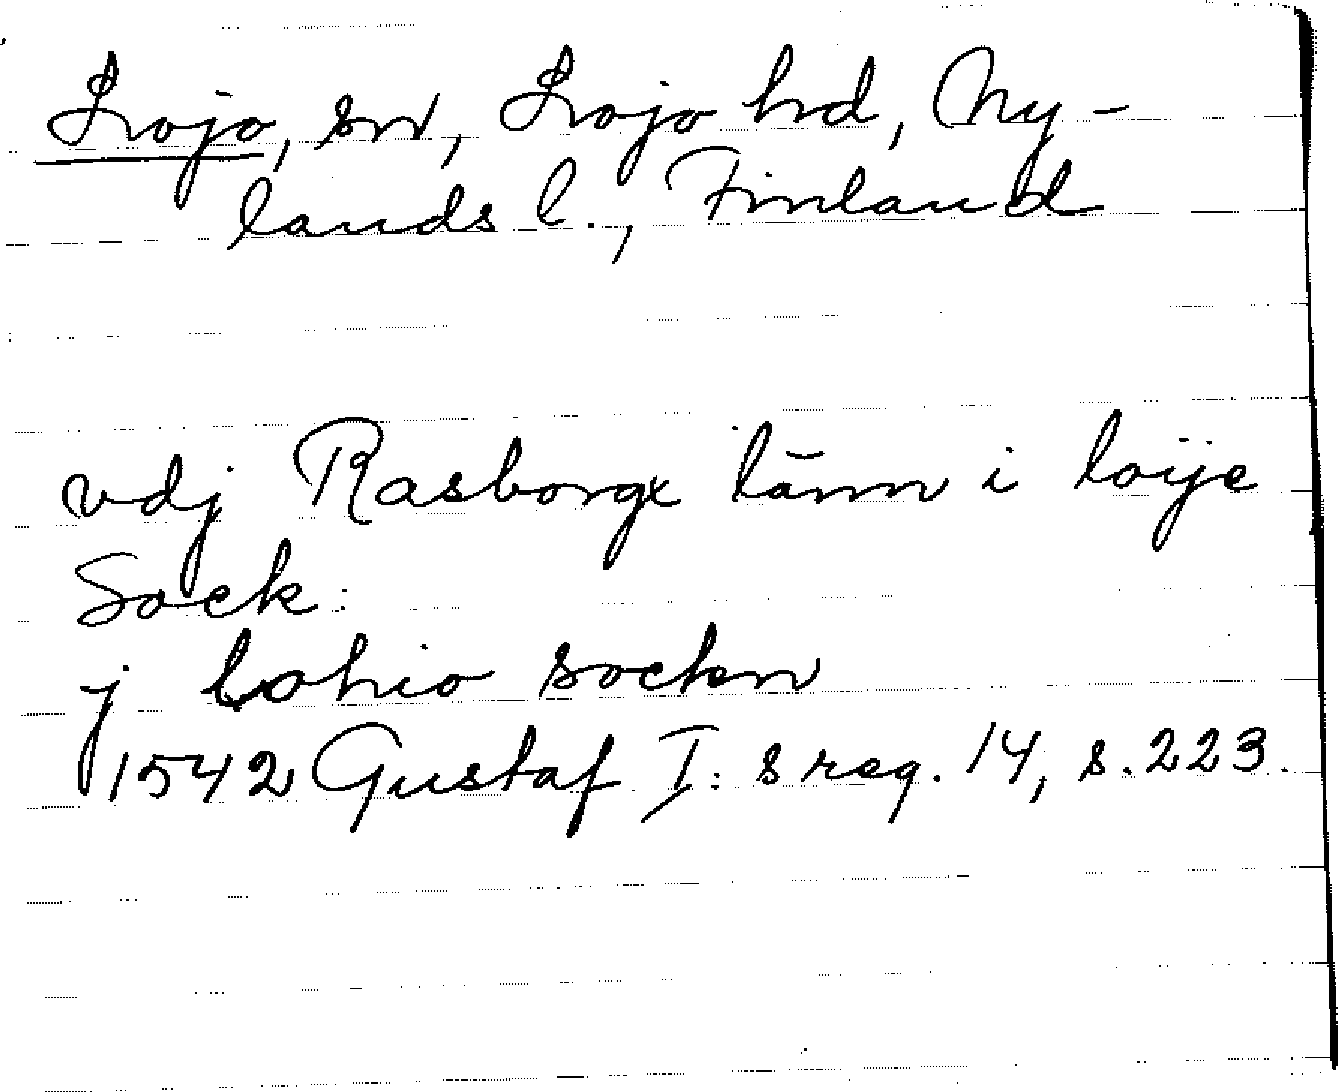 Lojo, sn, Lojo hd, Ny-
lands l., Finland
vdj Rasborgx länn i loije
Sock:
j lohio sockn
1542 Gustaf I: s reg. 14, s. 223.